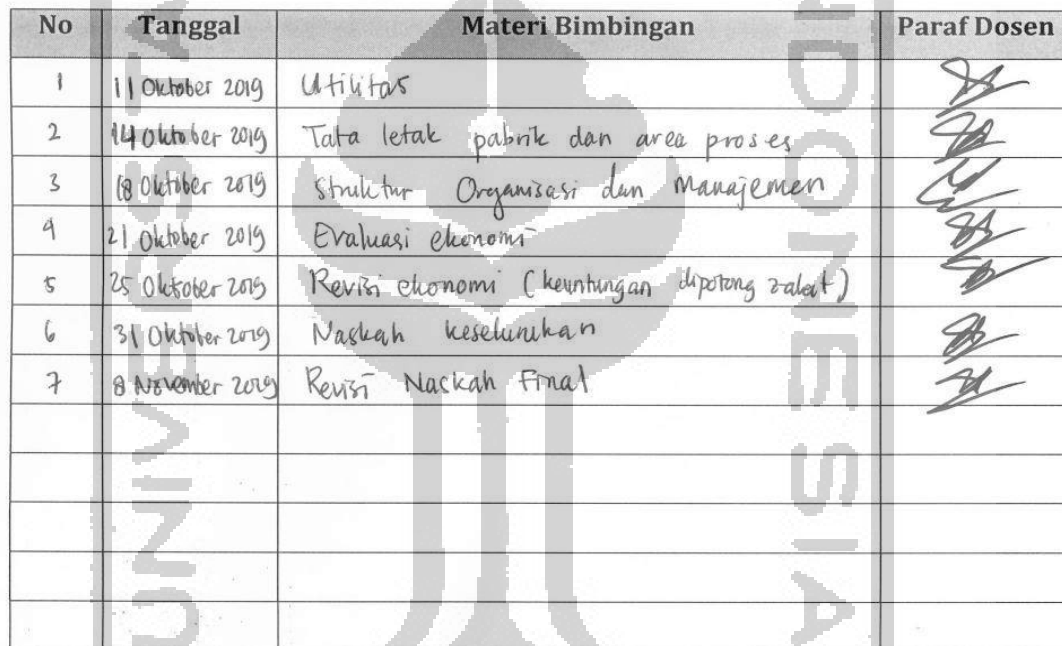 No Tanggal Materi Bimbingan Paraf Dosen
1 11 Oktober 2019 Utilitas
2 14 Oktober 2019 Tata letak pabrik dan area proses
3 18 Oktober 2019 Struktur Organisasi dan Manajemen
4 21 Oktober 2019 Evaluasi ekonomi
5 25 Oktober 2019 Revisi ekonomi (keuntungan dipotong zakat)
6 31 Oktober 2019 Naskah keseluruhan
7 8 November 2019 Revisi Naskah Final